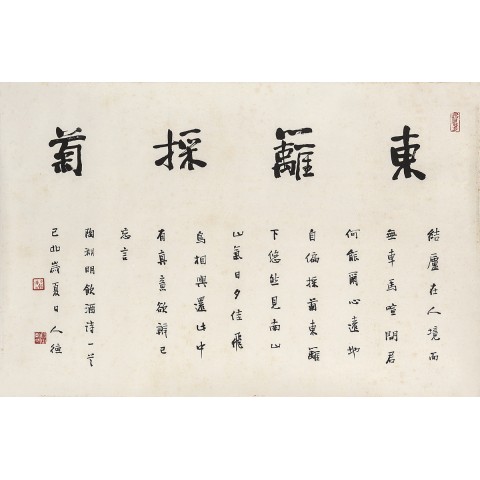 東籬採菊
結廬在人境而
無車馬喧問君
何能爾心遠地
自偏採菊東籬
下悠然見南山
山氣日夕佳飛
鳥相與還此中
有真意欲辨已
忘言
陶淵明飲酒詩一首
己卯歲夏日人德